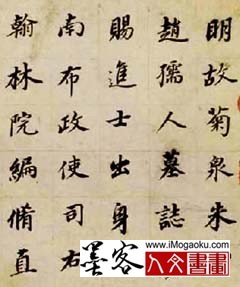 明故菊泉朱
趙孺人墓誌
賜進士出身
南布政使司右
翰林院編脩直
www.iMogaoku.com
墨客人文書畫